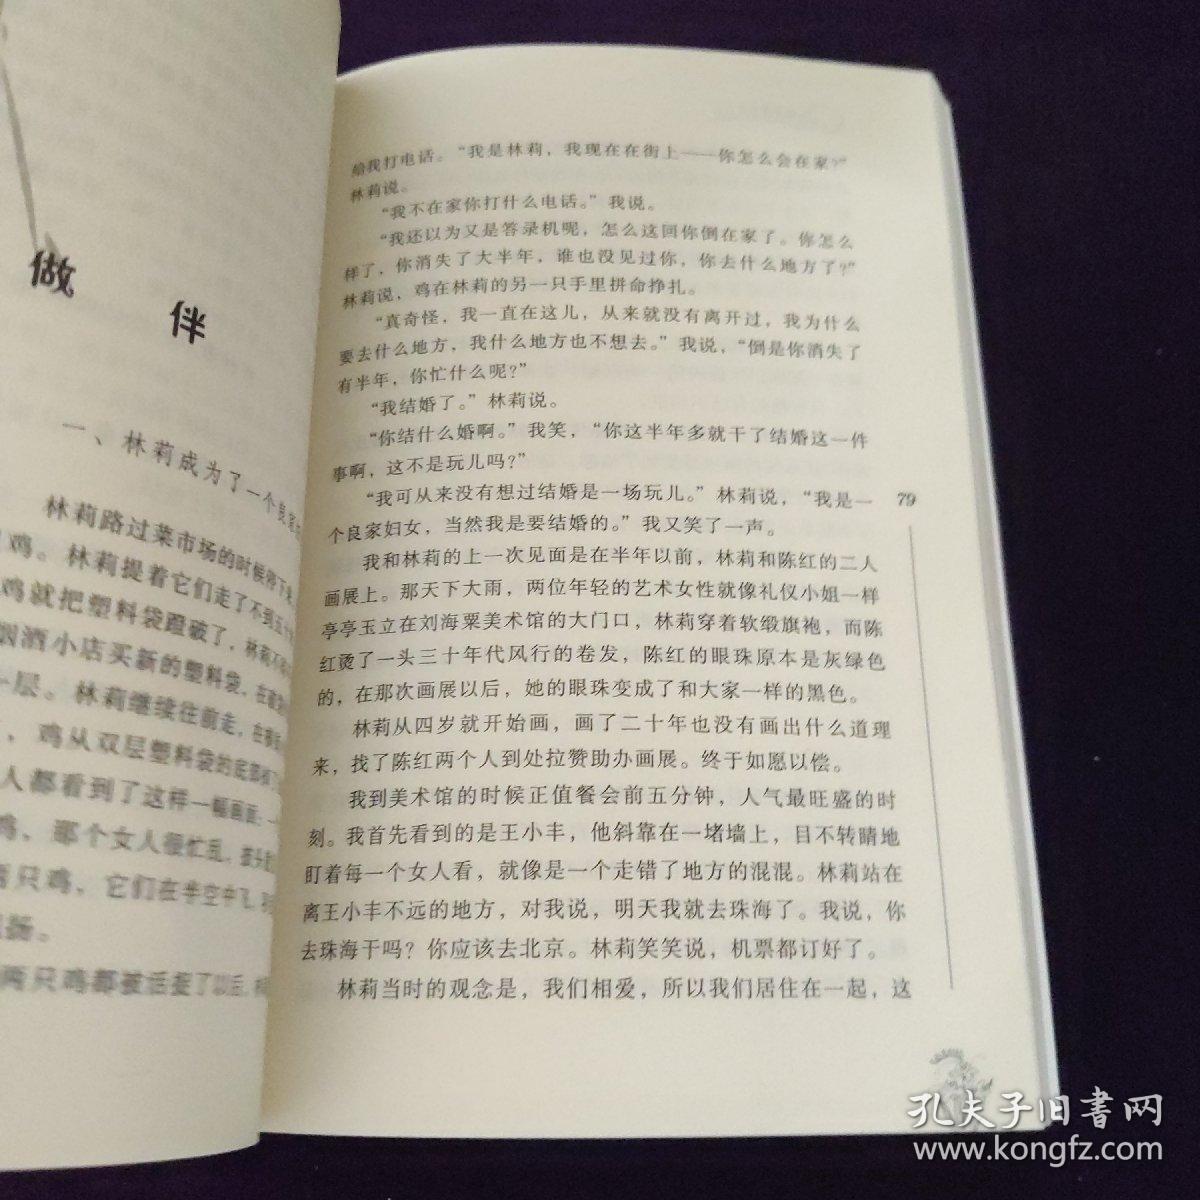 做
伴
一、林莉成为了一个良家
林莉路过菜市场的时候停下来
鸡。林莉提着它们走了不到五个
鸡就把塑料袋蹬破了，林莉不
烟酒小店买新的塑料袋，在
一层。林莉继续往前走，在
，鸡从双层塑料袋的底部
人都看到了这样一幅画面：一
鸡，那个女人很忙乱，
两只鸡，它们在半空中飞，
扬。
两只鸡都被活捉了以后，
给我打电话。“我是林莉，我现在在街上——你怎么会在家？”
林莉说。
“我不在家你打什么电话。”我说。
“我还以为又是答录机呢，怎么这回你倒在家了。你怎么
样了，你消失了大半年，谁也没见过你，你去什么地方了？”
林莉说，鸡在林莉的另一只手里拼命挣扎。
“真奇怪，我一直在这儿，从来就没有离开过，我为什么
要去什么地方，我什么地方也不想去。”我说，“倒是你消失了
有半年，你忙什么呢？”
“我结婚了。”林莉说。
“你结什么婚啊。”我笑，“你这半年多就干了结婚这一件
事啊，这不是玩儿吗？”
“我可从来没有想过结婚是一场玩儿。”林莉说，“我是一
个良家妇女，当然我是要结婚的。”我又笑了一声。
我和林莉的上一次见面是在半年以前，林莉和陈红的二人
画展上。那天下大雨，两位年轻的艺术女性就像礼仪小姐一样
亭亭玉立在刘海粟美术馆的大门口，林莉穿着软缎旗袍，而陈
红烫了一头三十年代风行的卷发，陈红的眼珠原本是灰绿色
的，在那次画展以后，她的眼珠变成了和大家一样的黑色。
林莉从四岁就开始画，画了二十年也没有画出什么道理
来，找了陈红两个人到处拉赞助办画展。终于如愿以偿。
我到美术馆的时候正值餐会前五分钟，人气最旺盛的时
刻。我首先看到的是王小丰，他斜靠在一堵墙上，目不转睛地
盯着每一个女人看，就像是一个走错了地方的混混。林莉站在
离王小丰不远的地方，对我说，明天我就去珠海了。我说，你
去珠海干吗？你应该去北京。林莉笑笑说，机票都订好了。
林莉当时的观念是，我们相爱，所以我们居住在一起，这
79
孔夫子旧书网
www.kongfz.com